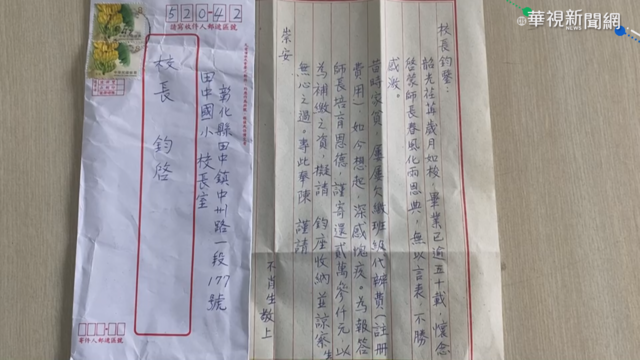 華視新聞網
520-42
請寫收件人郵遞區號
彰化縣田中鎮中州路一段177號
田中國小 校長室
校長 鈞啓
寄件人郵遞區號
校長鈞鑒:
韶光荏苒歲月如梭,畢業已逾五十載,懷念
啓蒙師長春風化雨恩典,無以言表,不勝
感激。
昔時家貧,屢屢欠繳班級代辦費(註冊
費用)如今想起,深感愧疚。為報答
師長培育恩德,謹寄還貳萬參仟元,以
為補繳之資,擬請 鈞座收納並諒察生
無心之過。專此擧陳 謹請
崇安
不肖生敬上